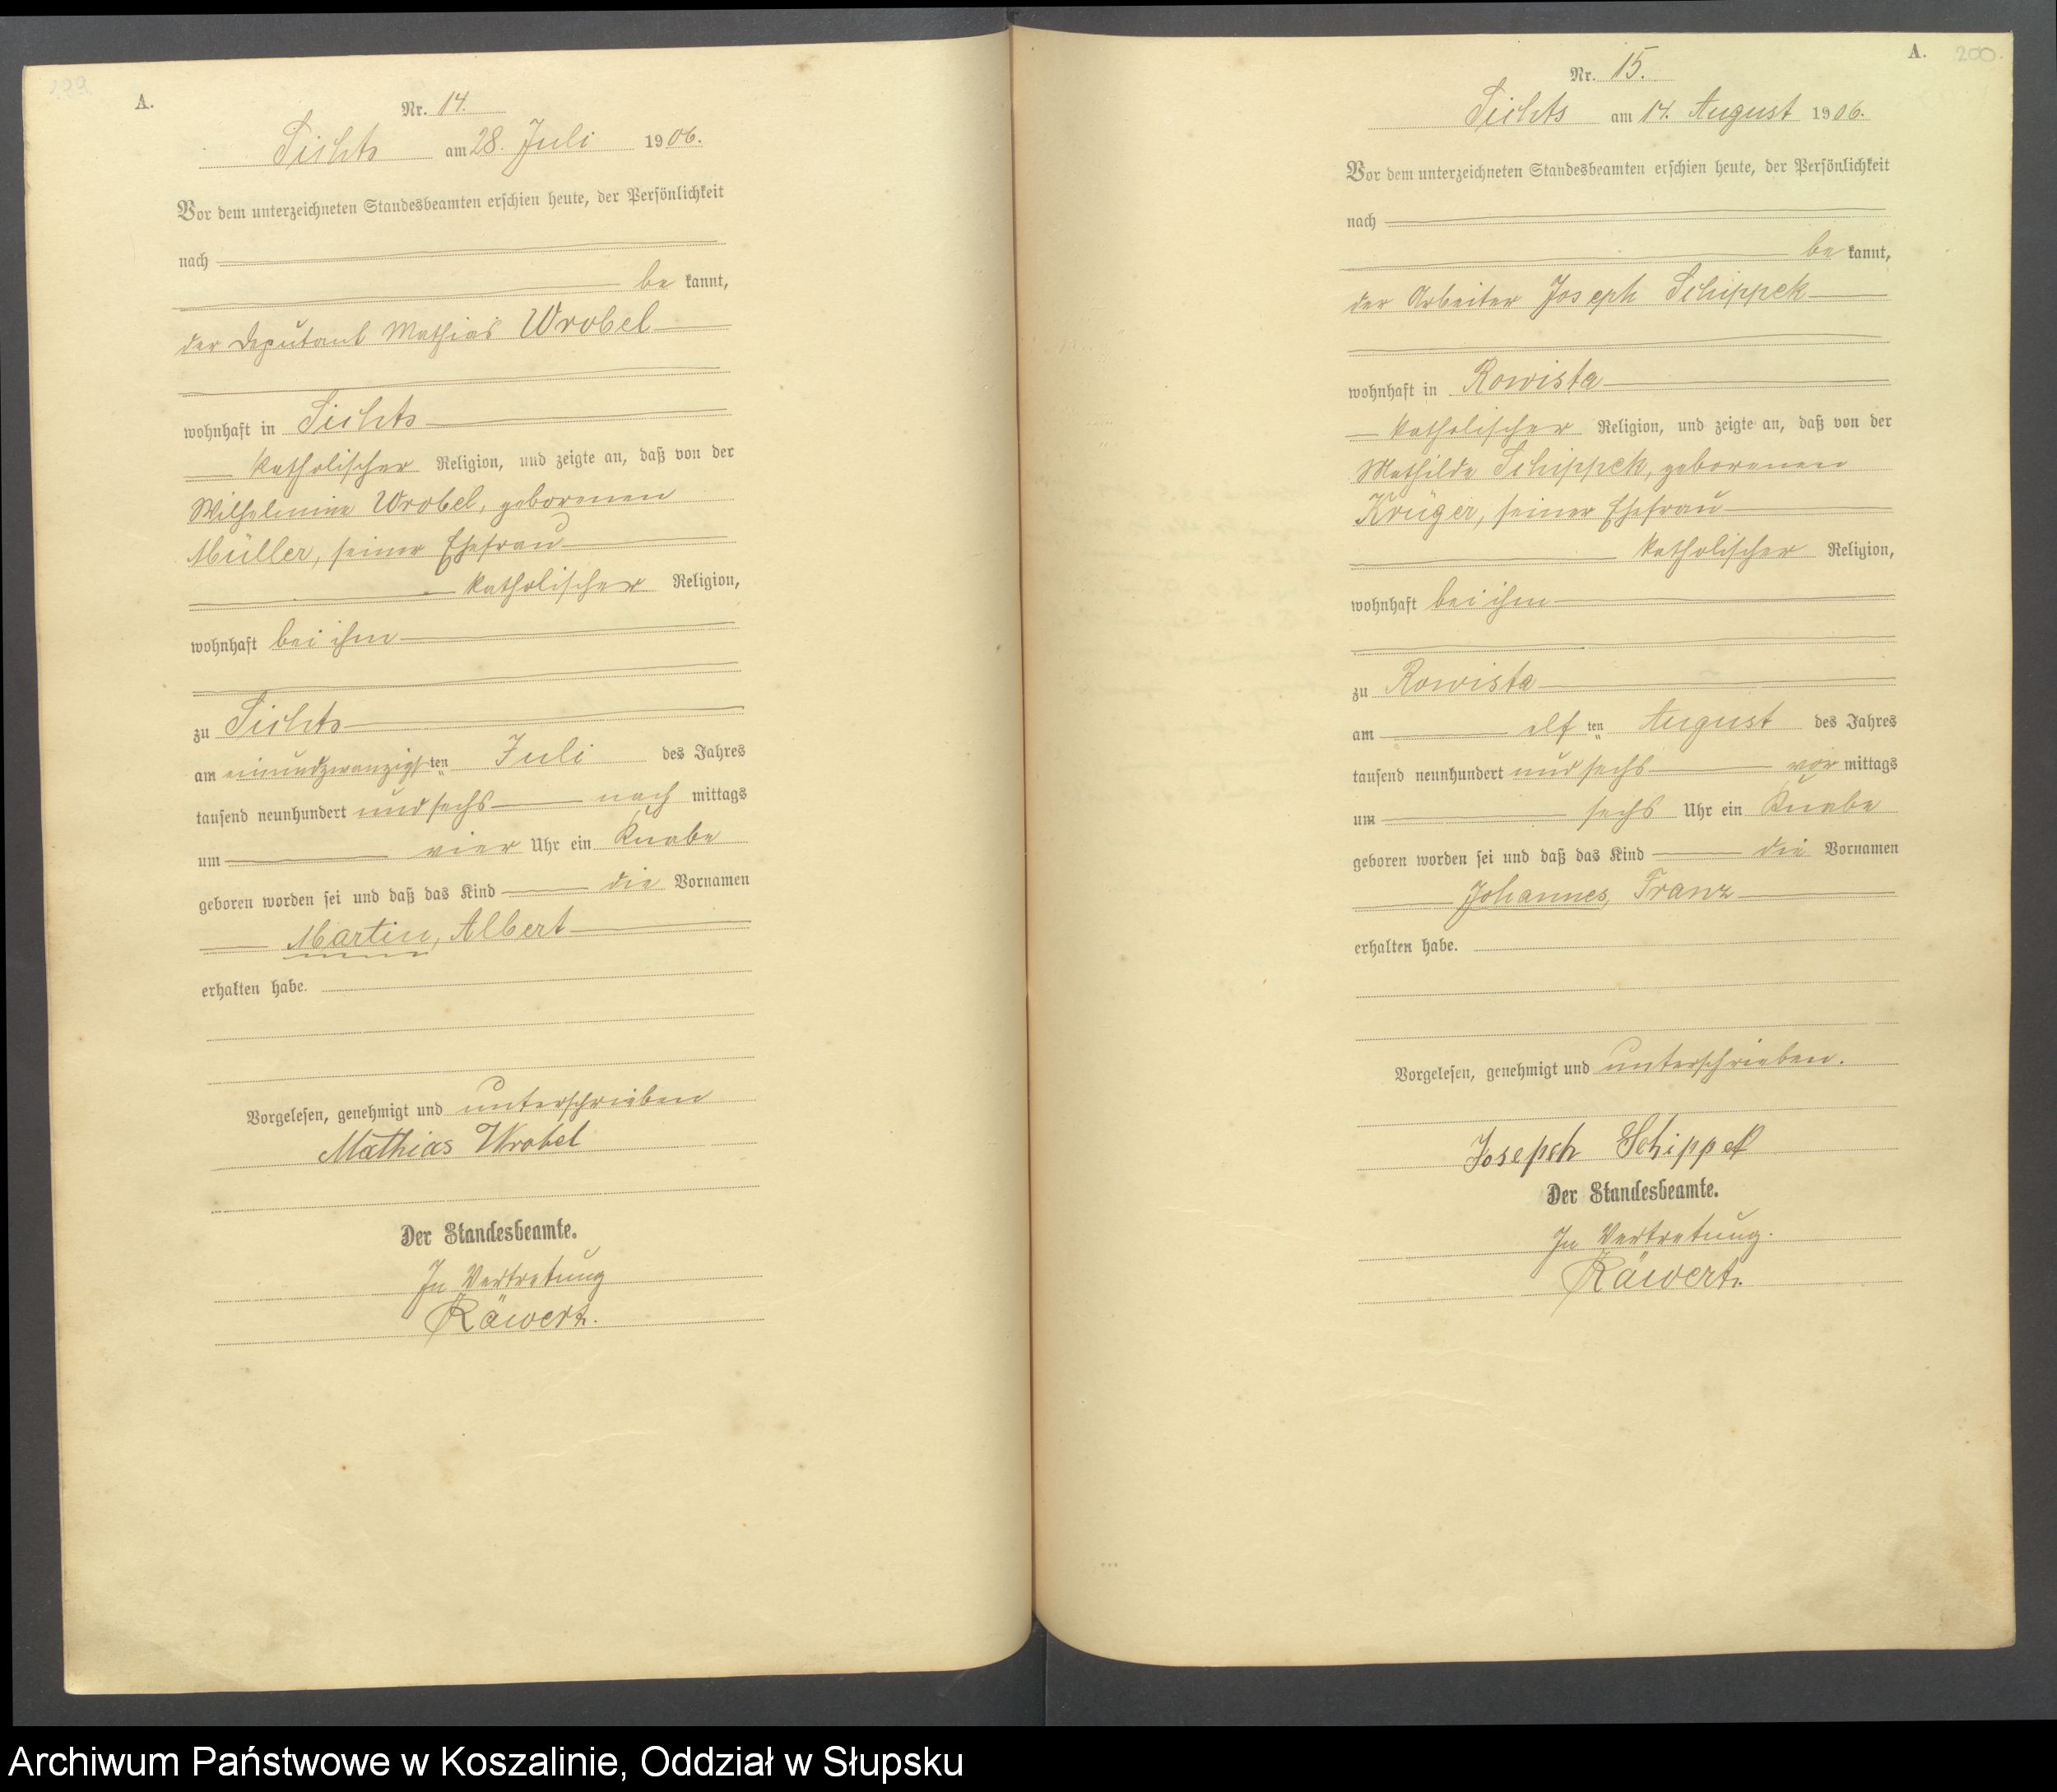 199
A.
Nr. 14.
Sichts am 28. Juli 1906.
Vor dem unterzeichneten Standesbeamten erschien heute, der Persönlichkeit
nach
be kannt,
der Deputant Mathias Wrobel
wohnhaft in Sichts
katholischer Religion, und zeigte an, daß von der
Wilhelmine Wrobel, geborenen
Müller, seiner Ehefrau
katholischer Religion,
wohnhaft bei ihm
zu Sichts
am einundzwanzigsten Juli des Jahres
tausend neunhundert und sechs nach mittags
um vier Uhr ein Knabe
geboren worden sei und daß das Kind die Vornamen
Martin, Albert
erhalten habe.
Vorgelesen, genehmigt und unterschrieben
Mathias Wrobel
Der Standesbeamte.
In Vertretung
Räwert.
A. 200.
Nr. 15.
Sichts am 14. August 1906.
Vor dem unterzeichneten Standesbeamten erschien heute, der Persönlichkeit
nach
be kannt,
der Arbeiter Joseph Schippek
wohnhaft in Rowista
katholischer Religion, und zeigte an, daß von der
Mathilde Schippek, geborenen
Krüger, seiner Ehefrau
katholischer Religion,
wohnhaft bei ihm
zu Rowista
am elf ten August des Jahres
tausend neunhundert und sechs vor mittags
um sechs Uhr ein Knabe
geboren worden sei und daß das Kind die Vornamen
Johannes, Franz
erhalten habe.
Vorgelesen, genehmigt und unterschrieben.
Josepeh Schippek
Der Standesbeamte.
In Vertretung.
Räwert.
Archiwum Państwowe w Koszalinie, Oddział w Słupsku